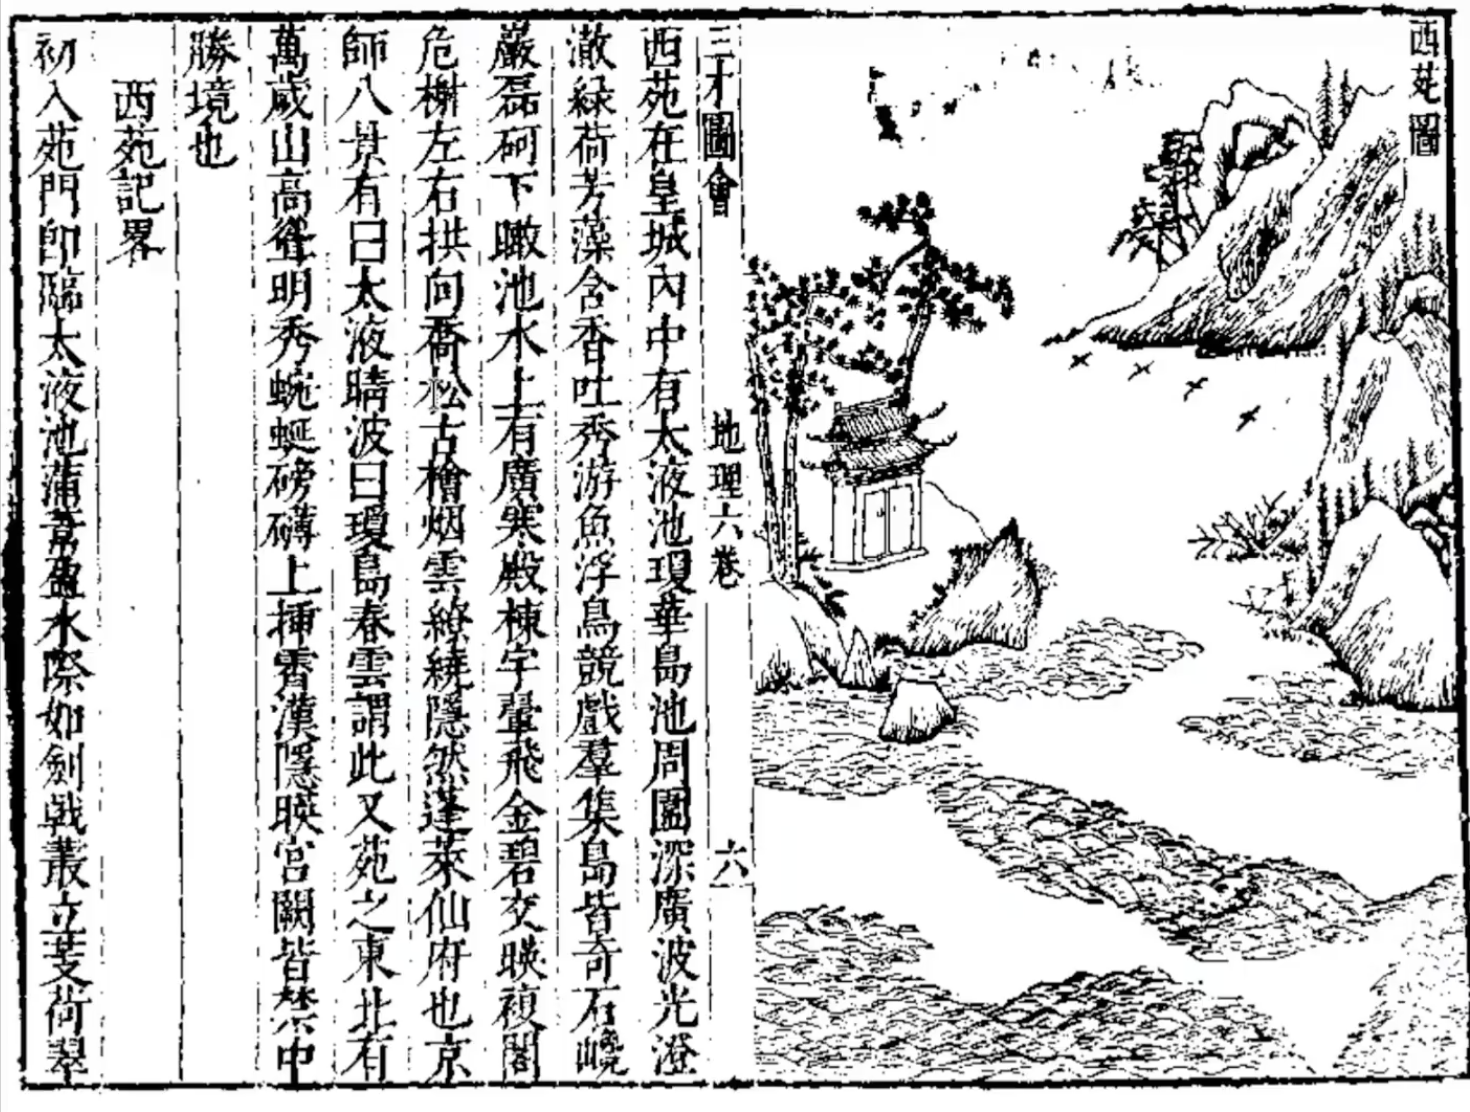 西苑圖
三才圖會 地理六卷 六
西苑在皇城內中有太液池瓊華島池周圍深廣波光澄
澈緑荷芳藻含香吐秀游魚浮鳥競戲羣集島皆奇石巉
巖磊砢下瞰池水上有廣寒殿棟宇翬飛金碧交暎複閣
危榭左右拱向喬松古檜烟雲繚繞隱然蓬萊仙府也京
師八景有曰太液晴波曰瓊島春雲謂此又苑之東北有
萬歲山高聳明秀蜿蜒磅礴上揷霄漢隱暎宮闕皆禁中
勝境也
西苑記畧
初入苑門即臨太液池蒲葦盈水際如劍戟叢立芰荷翠